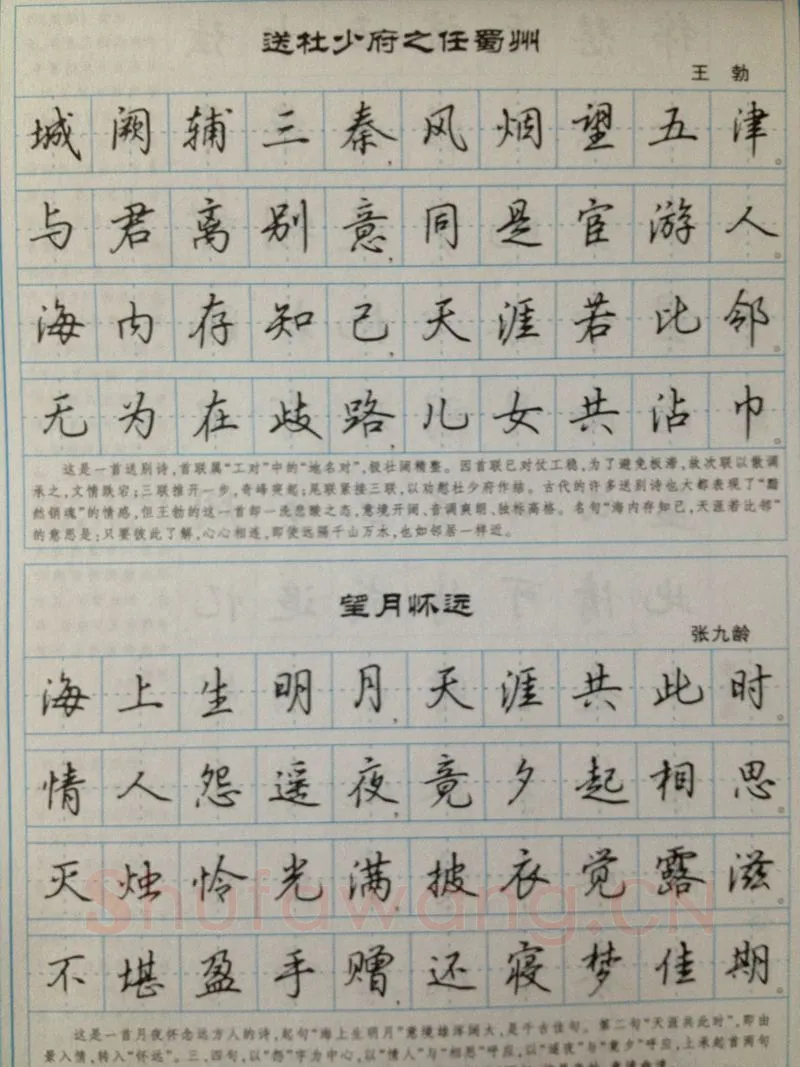 送杜少府之任蜀州
王 勃
城阙辅三秦，风烟望五津。
与君离别意，同是宦游人。
海内存知己，天涯若比邻。
无为在歧路，儿女共沾巾。
这是一首送别诗，首联属“工对”中的“地名对”，极壮阔精整。因首联已对仗工稳，为了避免板滞，故次联以散调
承之，文情跌宕；三联推开一步，奇峰突起；尾联紧接三联，以劝慰杜少府作结。古代的许多送别诗也大都表现了“黯
然销魂”的情感，但王勃的这一首却一洗悲酸之态，意境开阔、音调爽朗、独标高格。名句“海内存知己，天涯若比邻”
的意思是：只要彼此了解，心心相连，即使远隔千山万水，也如邻居一样近。
望月怀远
张九龄
海上生明月，天涯共此时。
情人怨遥夜，竟夕起相思。
灭烛怜光满，披衣觉露滋。
不堪盈手赠，还寝梦佳期。
Shufawang.CN
这是一首月夜怀念远方人的诗，起句“海上生明月”意境雄浑阔大，是千古佳句。第二句“天涯共此时”，即由
景入情，转入“怀远”。三、四句，以“怨”字为中心，以“情人”与“相思”呼应，以“遥夜”与“竟夕”呼应，上承起首两句